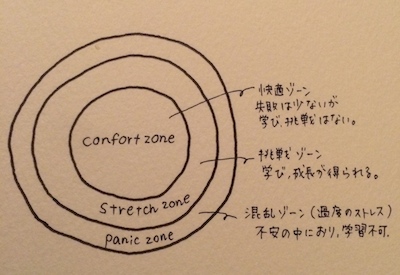 confort zone
stretch zone
panic zone
快適ゾーン
失敗は少ないが
学び、挑戦はない。
挑戦ゾーン
学び、成長が得られる。
混乱ゾーン(過度のストレス)
不安の中におり、学習不可。